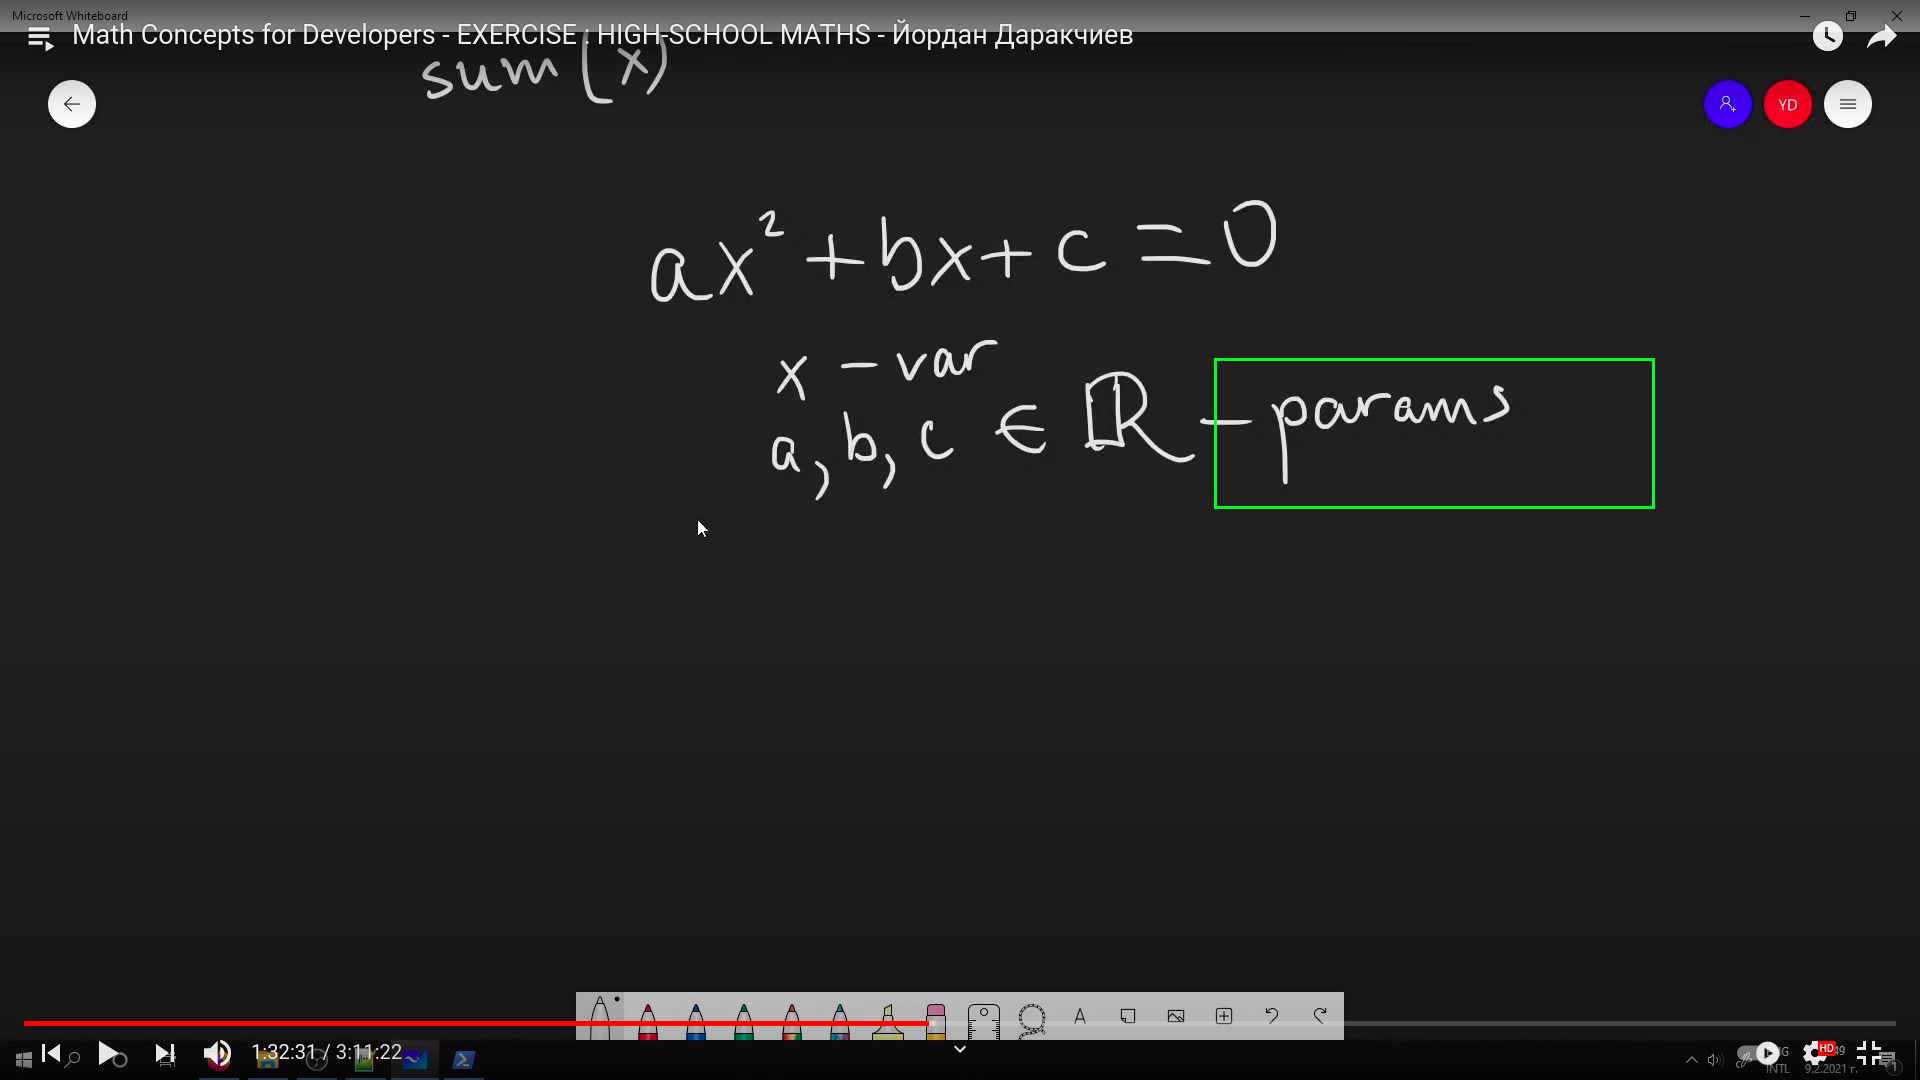 Microsoft Whiteboard
Math Concepts for Developers - EXERCISE : HIGH-SCHOOL MATHS - Йордан Даракчиев
sum(x)
YD
ax² + bx + c = 0
x - var
a, b, c ∈ ℝ - params
A
1:32:31 / 3:11:22
HD
INTL
9.2.2021 г.
1